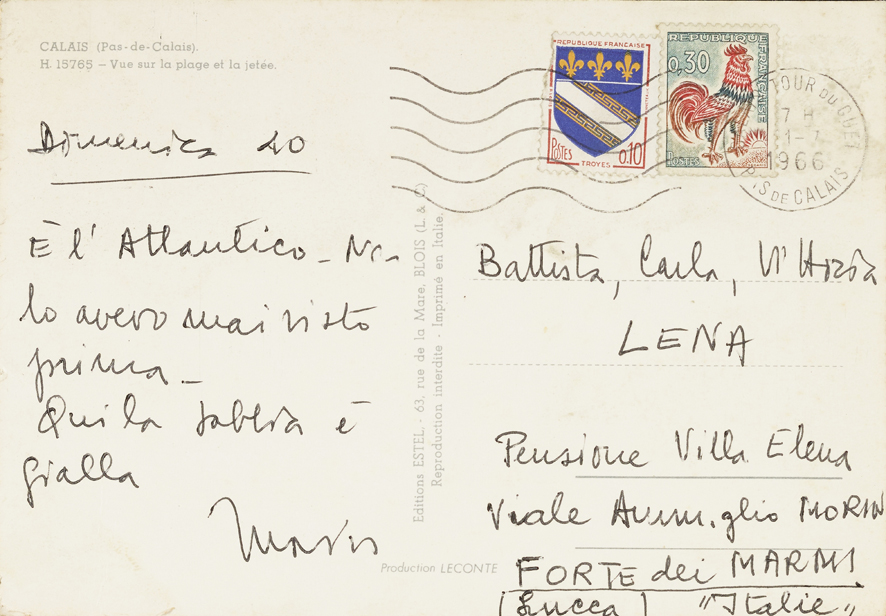 CALAIS (Pas-de-Calais).
H. 15765 – Vue sur la plage et la jetée.
Domenica 10
È l' Atlantico – Non
lo avevo mai visto
prima –
Qui la sabbia è
gialla
Mario
Editions ESTEL, - 63, rue de la Mare, BLOIS (L. & C)
Reproduction interdite - Imprimé en Italie.
Production LECONTE
REPUBLIQUE FRANÇAISE
POSTES
0,10
TROYES
REPUBLIQUE FRANÇAISE
0,30
POSTES
TOUR DU GUET
7 H
1966
PAS DE CALAIS
Battista, Carla, Vittoria
LENA
Pensione Villa Elena
Viale Ammiraglio MORIN
FORTE dei MARMI
(Lucca) "Italie"